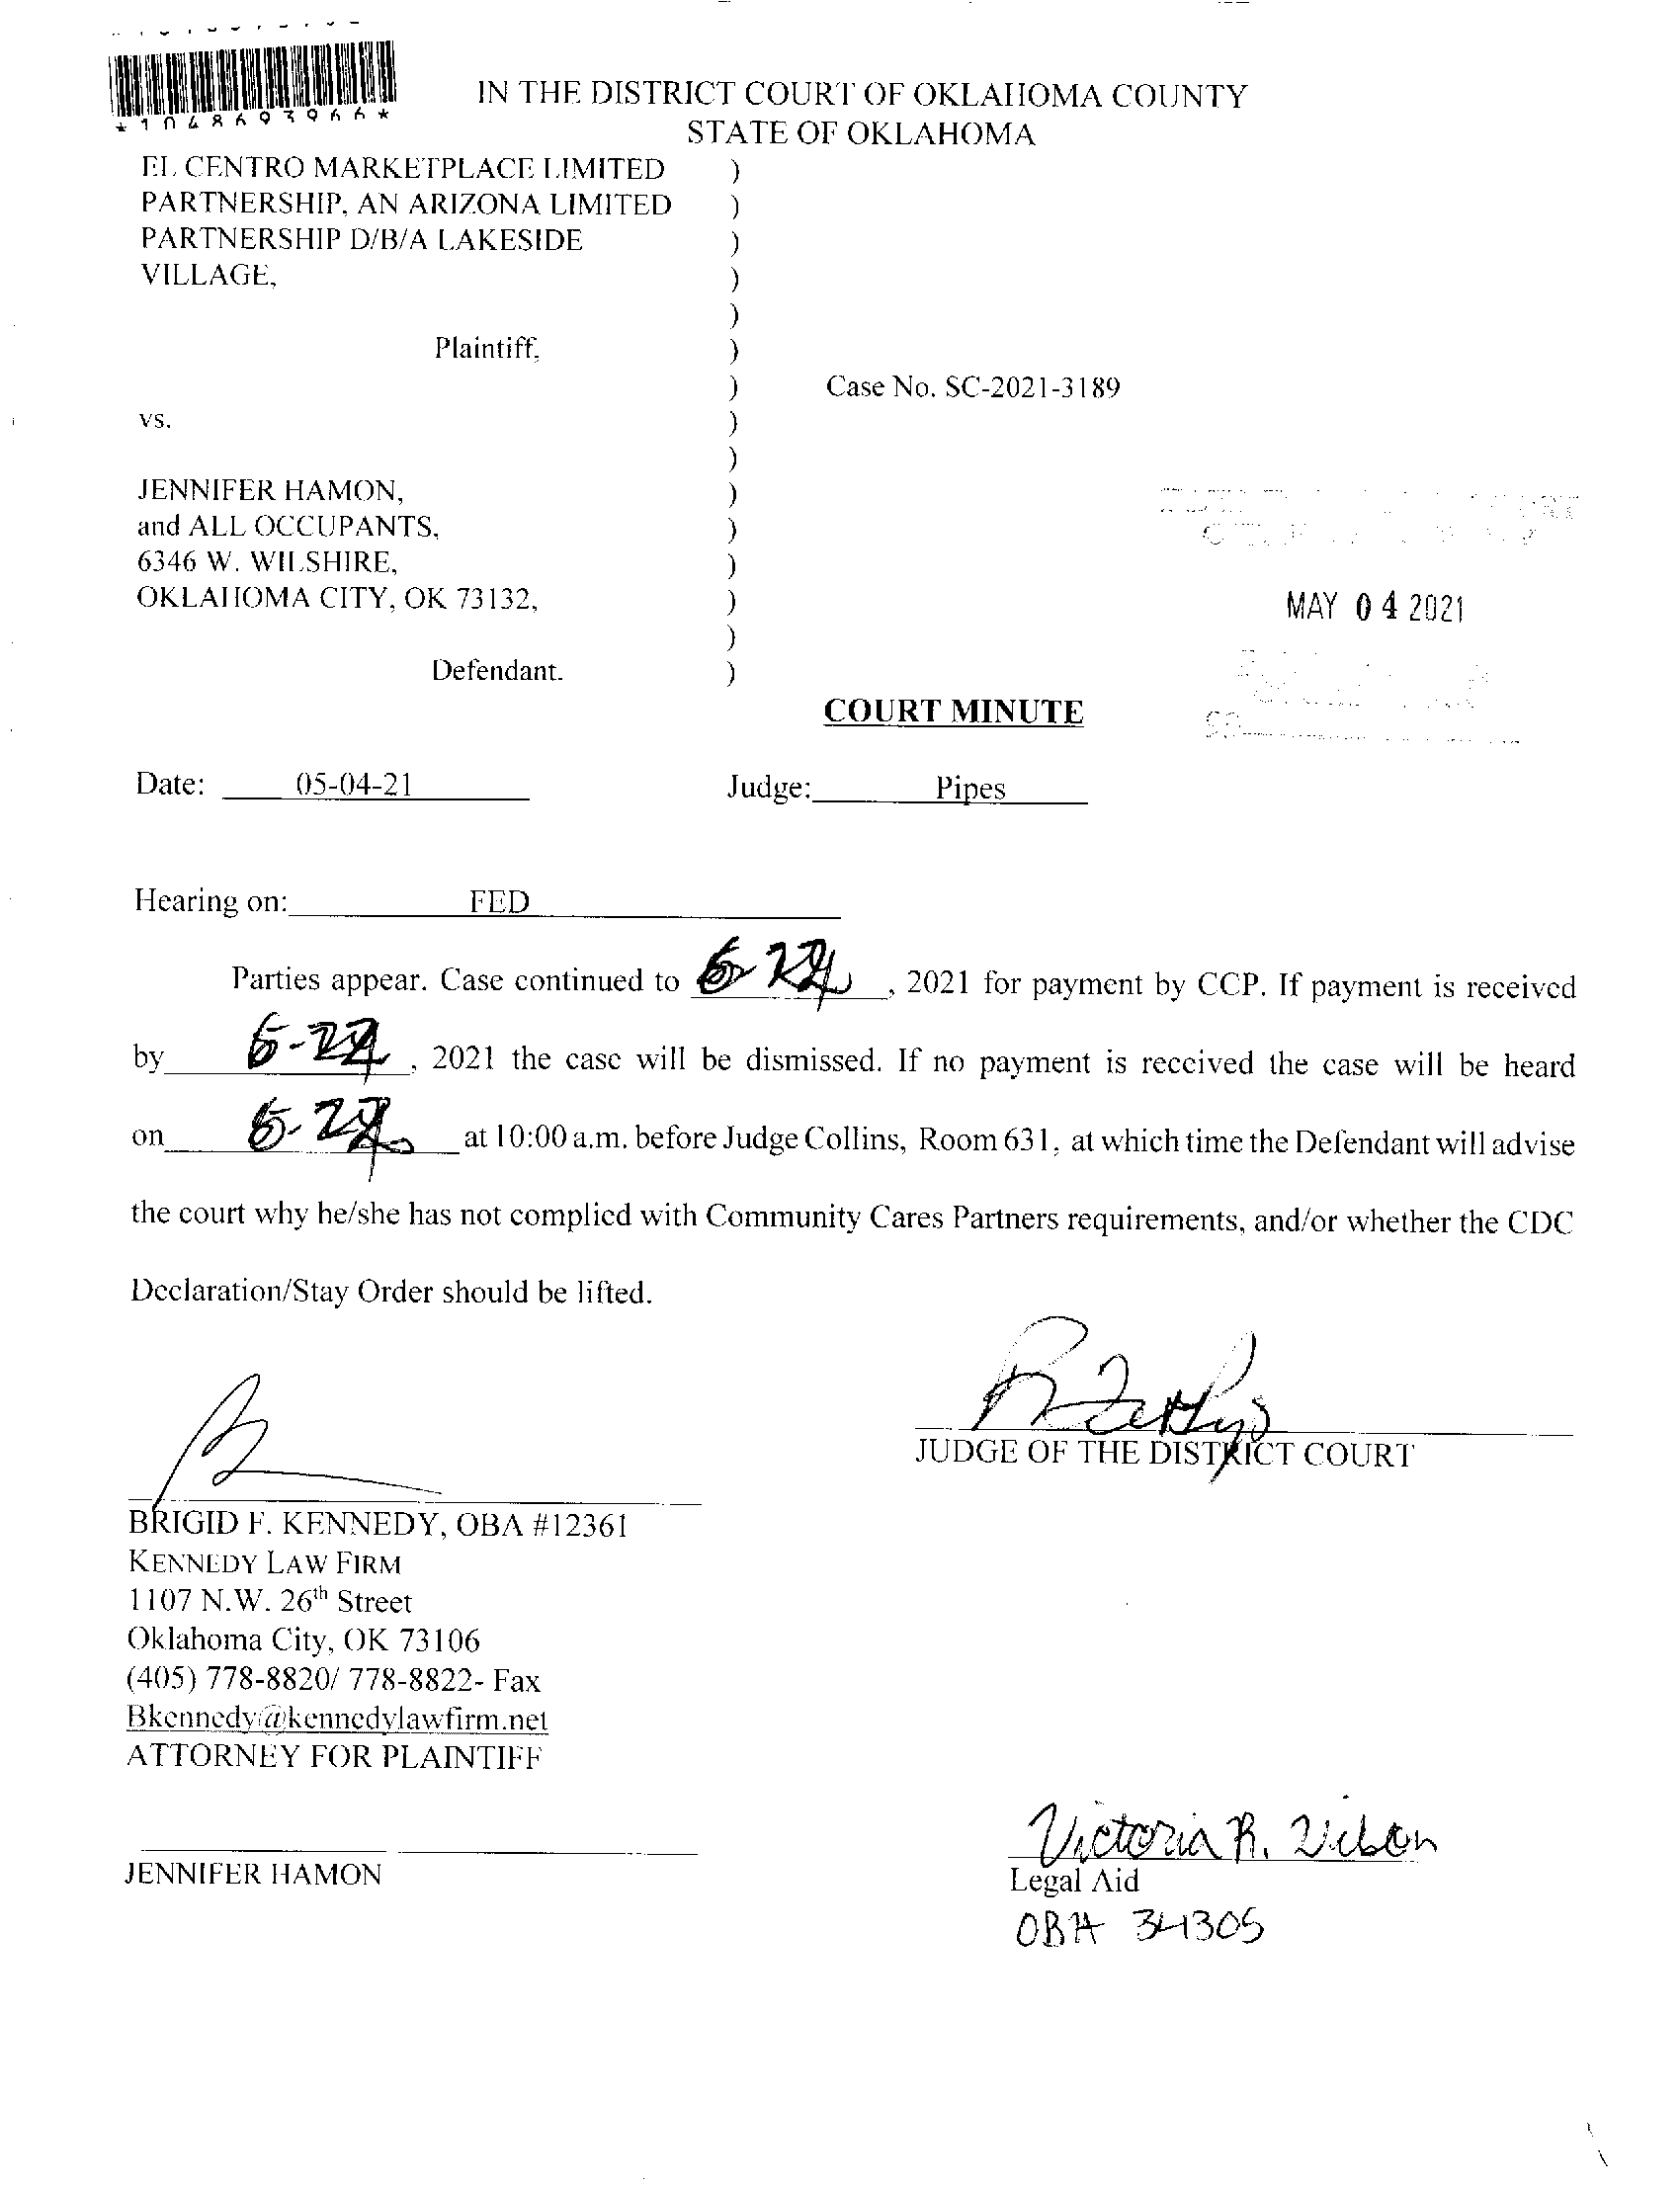 *1048693966*
IN THE DISTRICT COURT OF OKLAHOMA COUNTY
STATE OF OKLAHOMA
EL CENTRO MARKETPLACE LIMITED )
PARTNERSHIP, AN ARIZONA LIMITED )
PARTNERSHIP D/B/A LAKESIDE )
VILLAGE, )
)
Plaintiff, )
) Case No. SC-2021-3189
vs. )
)
JENNIFER HAMON, )
and ALL OCCUPANTS, )
6346 W. WILSHIRE, )
OKLAHOMA CITY, OK 73132, )
MAY 04 2021
)
Defendant. )
COURT MINUTE
Date: 05-04-21 Judge: Pipes
Hearing on: FED
Parties appear. Case continued to , 2021 for payment by CCP. If payment is received
by , 2021 the case will be dismissed. If no payment is received the case will be heard
on at 10:00 a.m. before Judge Collins, Room 631, at which time the Defendant will advise
the court why he/she has not complied with Community Cares Partners requirements, and/or whether the CDC
Declaration/Stay Order should be lifted.
JUDGE OF THE DISTRICT COURT
BRIGID F. KENNEDY, OBA #12361
KENNEDY LAW FIRM
1107 N.W. 26th Street
Oklahoma City, OK 73106
(405) 778-8820/ 778-8822- Fax
Bkennedy@kennedylawfirm.net
ATTORNEY FOR PLAINTIFF
Victoria R.
JENNIFER HAMON
Legal Aid
OBA 34305